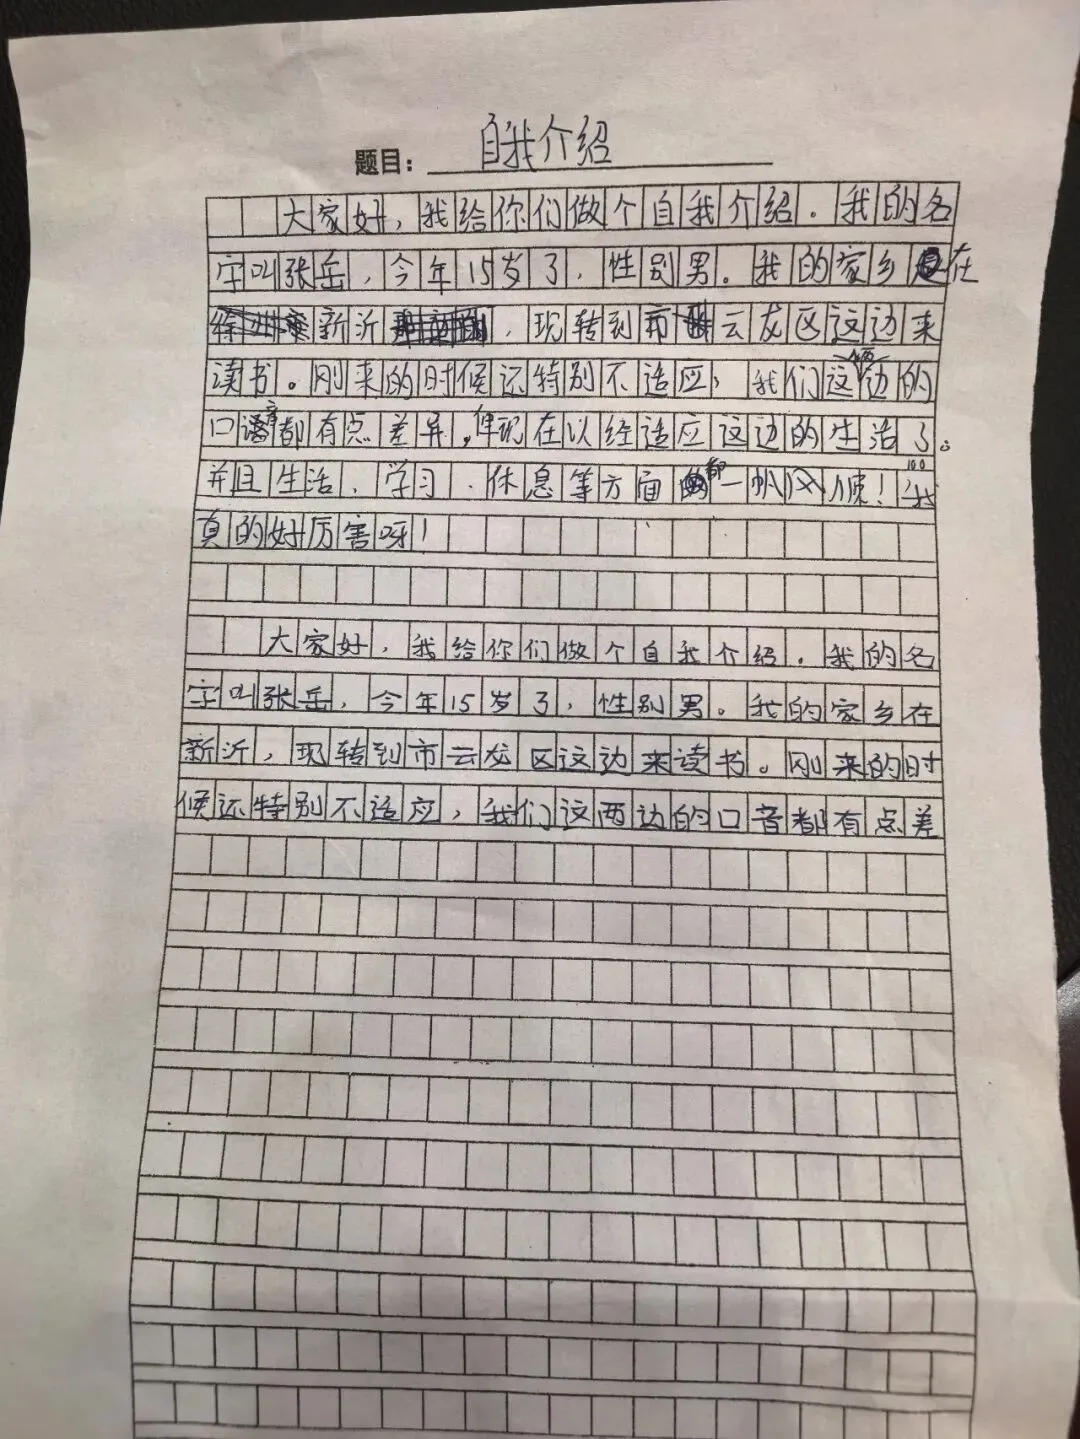 题目：自我介绍
大家好，我给你们做个自我介绍．我的名
字叫张岳，今年15岁了，性别男。我的家乡在
新沂，现转到市云龙区这边来
读书。刚来的时候还特别不适应，我们这两边的
口音都有点差异，但现在以经适应这边的生活了。
并且生活、学习、休息等方面都一帆风顺！我
真的好厉害呀！
大家好，我给你们做个自我介绍．我的名
字叫张岳，今年15岁了，性别男。我的家乡在
新沂，现转到市云龙区这边来读书。刚来的时
候还特别不适应，我们这两边的口音都有点差